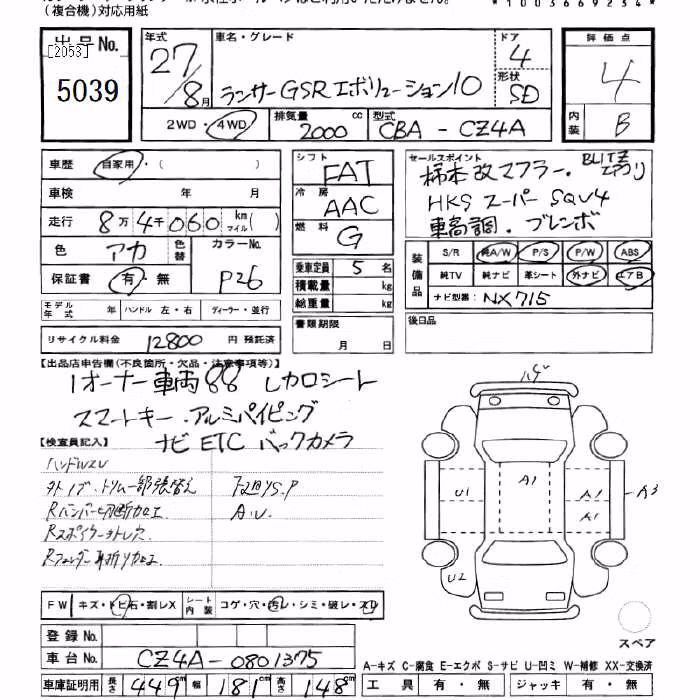 (複合機)対応用紙
*1003669234*
出品No.
[2053]
5039
年式 27/8月
車名・グレード ランサーGSRエボリューション10
ドア 4
形状 SD
評価点 4
内装 B
2WD・4WD
排気量 2000 cc
型式 CBA-CZ4A
車歴 自家用・( )
車検 年 月
走行 8万4千060 km マイル( )
色 アカ 色替 カラーNo. P26
保証書 有・無
モデル年式 年 ハンドル 左・右 ディーラー・並行
リサイクル料金 12800 円 預託済
シフト FAT
冷房 AAC
燃料 G
乗車定員 5 名
積載量 kg
総重量 kg
書類期限 月 日
セールスポイント
柿本改マフラー・BLITZエアクリ
HKSスーパーSQV4
車高調・ブレンボ
装備品 S/R 純A/W P/S P/W ABS
純TV 純ナビ 革シート 外ナビ エアB
ナビ型番: NX715
後日品
【出品店申告欄(不良箇所・欠品・注意事項等)】
1オーナー車両 レカロシート
スマートキー・アルミパイピング
ナビ ETC バックカメラ
【検査員記入】
ハンドル
A.U.
Rバンパー切断加工
Rフェンダー耳折り加工
FW キズ・トビ石・割レX シート内装 コゲ・穴・汚レ・シミ・破レ・スレ
登録No.
車台No. CZ4A-0801375
車庫証明用 長さ 449cm 幅 181cm 高さ 148cm
U1 A1 A1 A1 A3
U2
スペア
A-キズ C-腐食 E-エクボ S-サビ U-凹ミ W-補修 XX-交換済
工具 有・無 ジャッキ 有・無